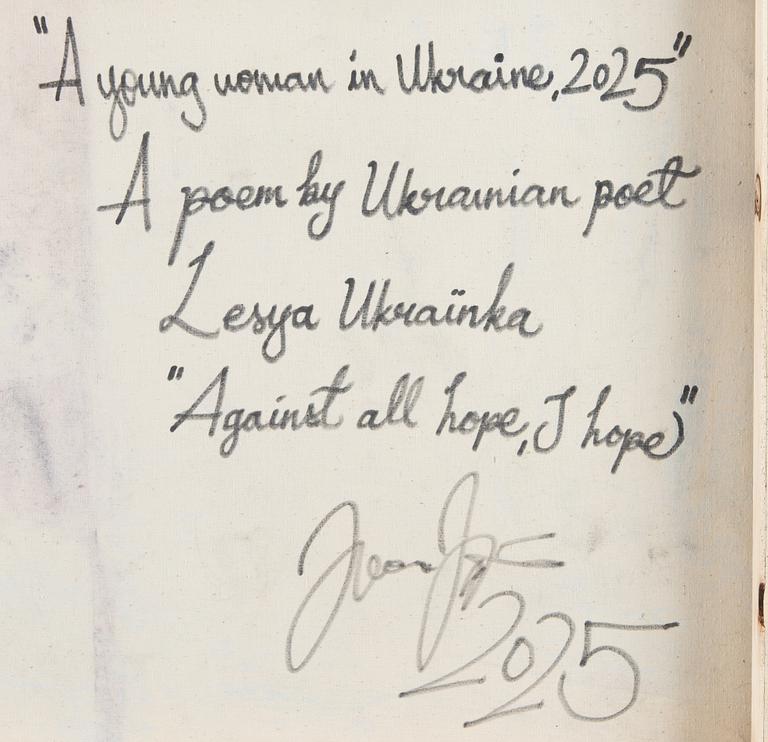 "A young woman in Ukraine, 2025"
A poem by Ukrainian poet
Lesya Ukraïnka
"Against all hope, I hope)"
2025